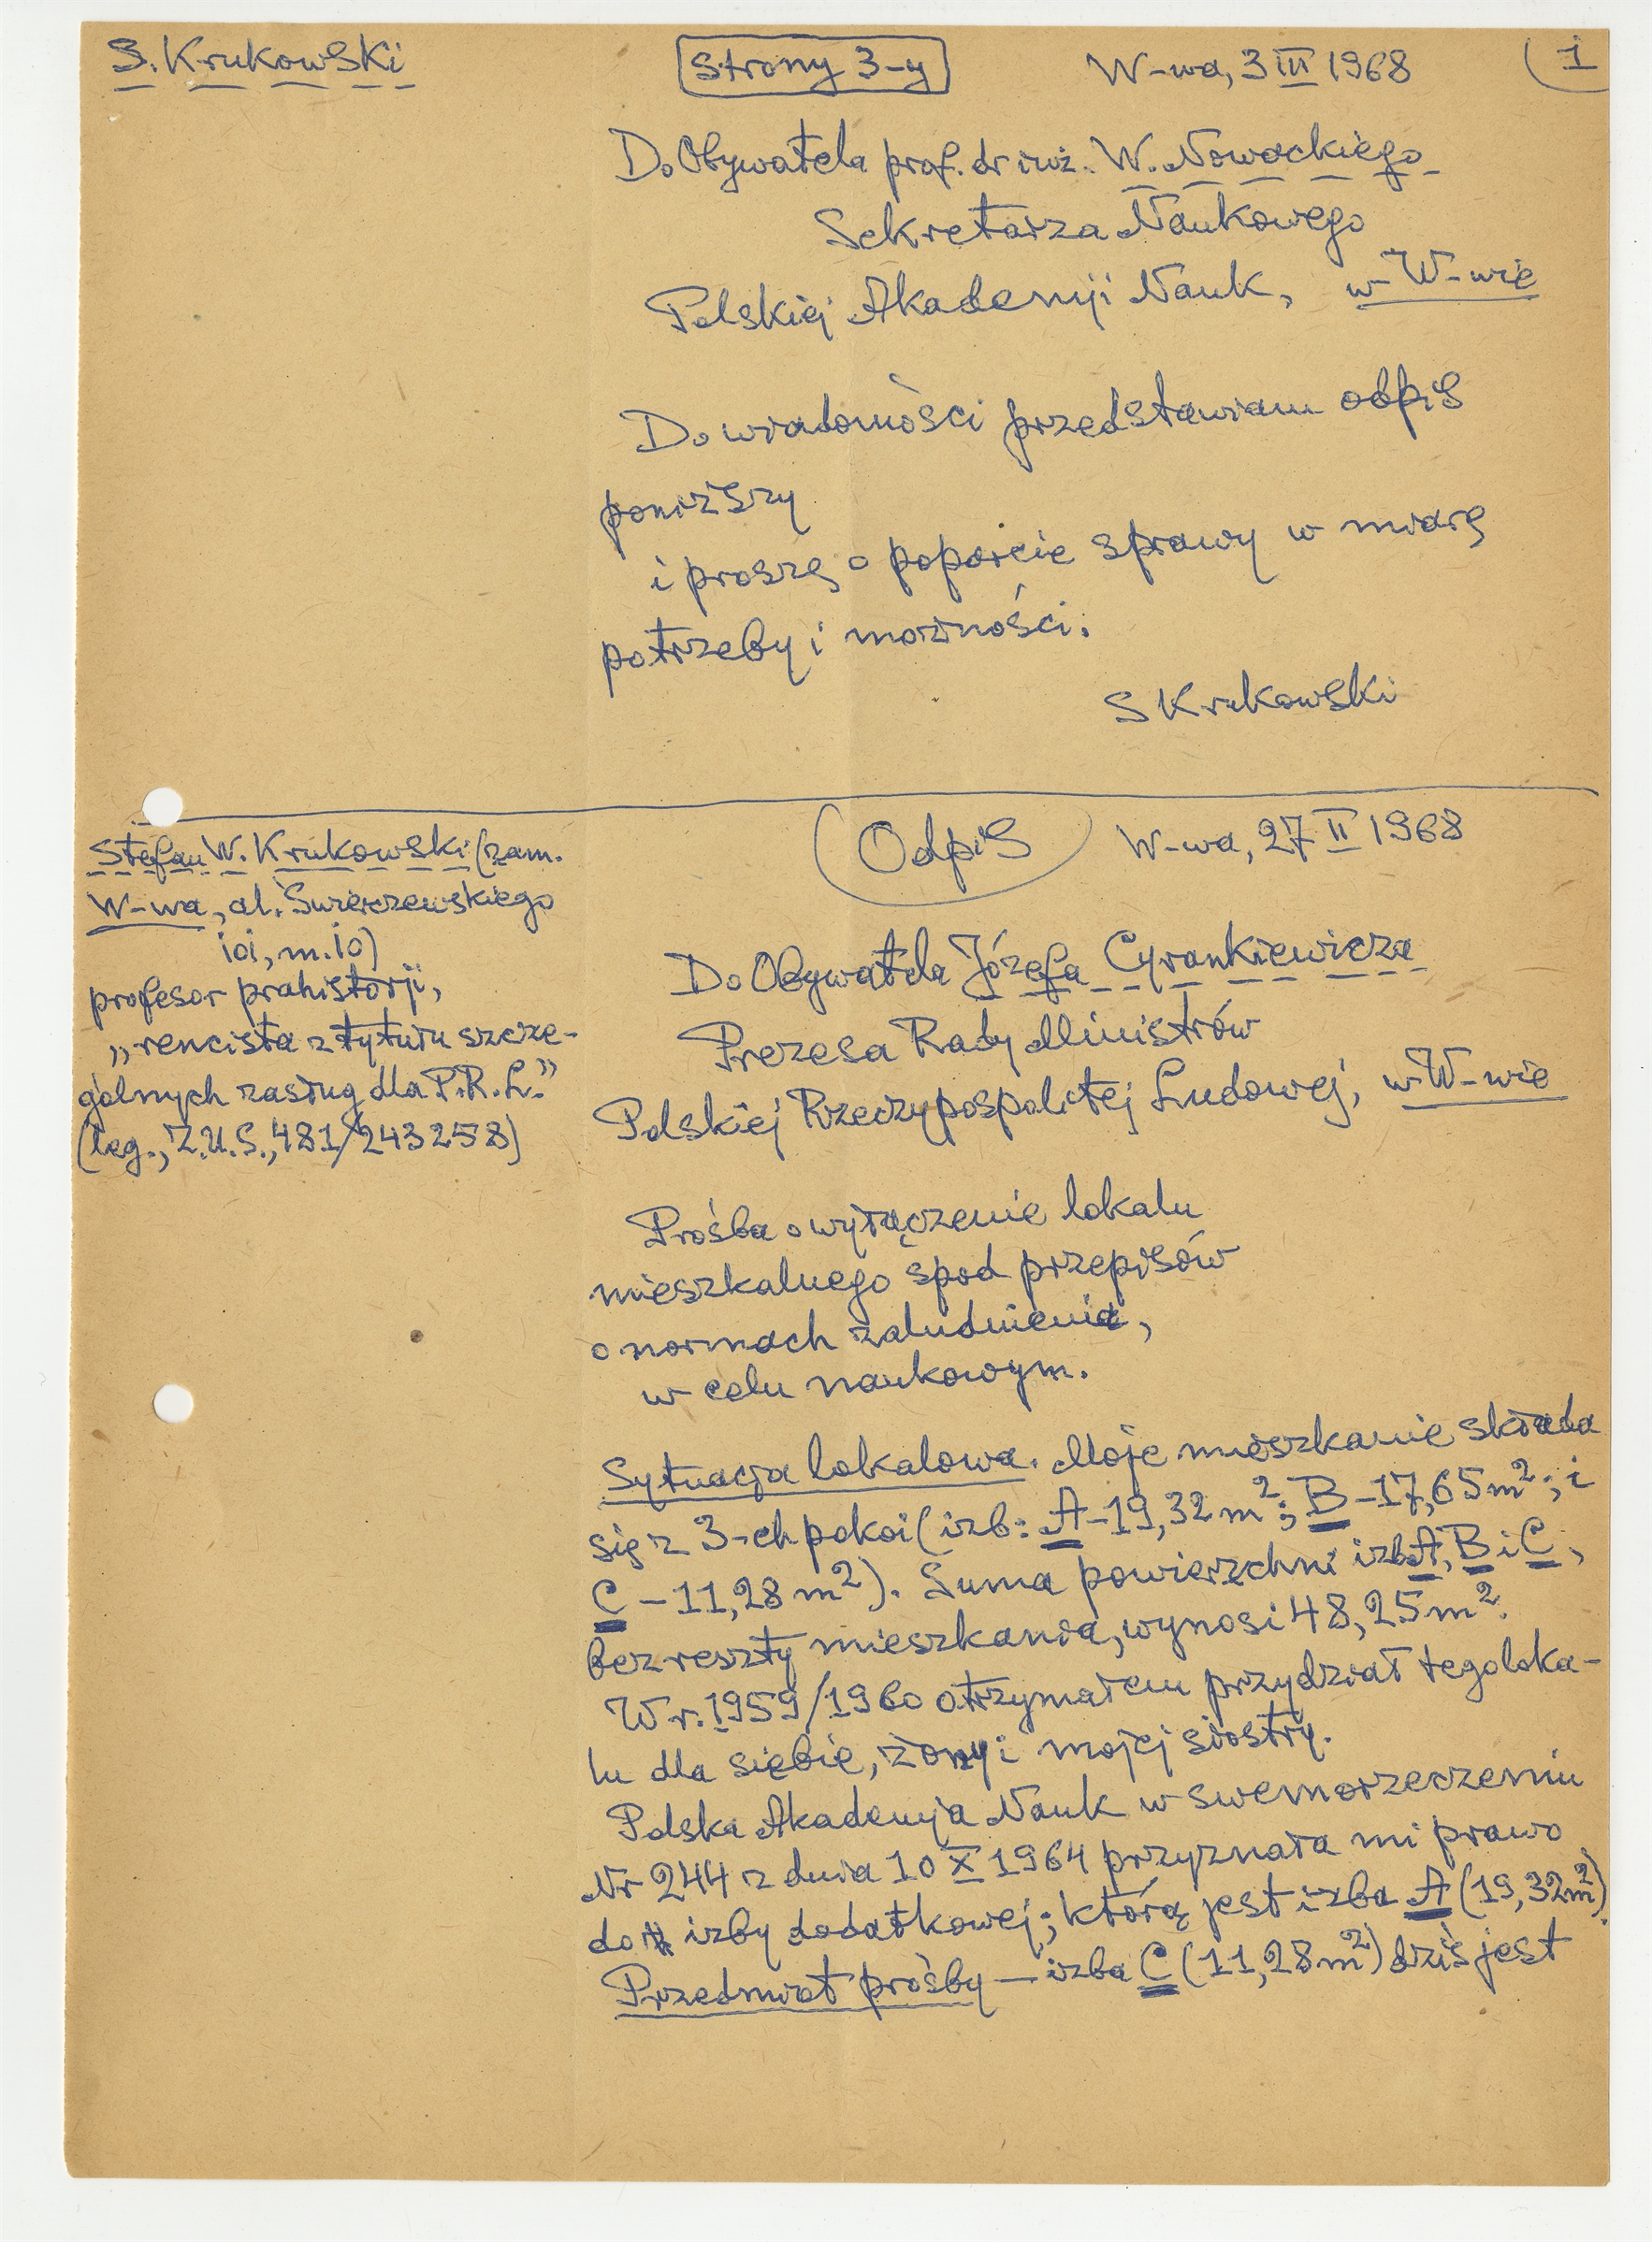 S. Krukowski
Strony 3-y
W-wa, 3 III 1968
1
Do Obywatela prof. dr inż. W. Nowackiego
Sekretarza Naukowego
Polskiej Akademji Nauk, w W-wie
Do wiadomości przedstawiam odpis
poniższy
i proszę o poparcie sprawy w miarę
potrzeby i możności.
S Krukowski
Odpis
W-wa, 27 II 1968
Stefan W. Krukowski (zam.
W-wa, al. Świerczewskiego
101, m. 10)
profesor prahistorji,
„rencista z tytułu szcze-
gólnych zasług dla P.R.L."
(leg., Z.U.S., 481/243258)
Do Obywatela Józefa Cyrankiewicza
Prezesa Rady Ministrów
Polskiej Rzeczypospolitej Ludowej, w W-wie
Prośba o wyłączenie lokalu
mieszkalnego spod przepisów
o normach zaludnienia,
w celu naukowym.
Sytuacja lokalowa. Moje mieszkanie składa
się z 3-ch pokoi (izb: A-19,32 m²; B-17,65 m²; i
C-11,28 m²). Suma powierzchni izb A, B i C,
bez reszty mieszkania, wynosi 48,25 m².
W r. 1959/1960 otrzymałem przydział tego loka-
lu dla siebie, żony i mojej siostry.
Polska Akademja Nauk w swem orzeczeniu
Nr 244 z dnia 10 X 1964 przyznała mi prawo
do izby dodatkowej; którą jest izba A (19,32 m²).
Przedmiot prośby — izba C (11,28 m²) dziś jest